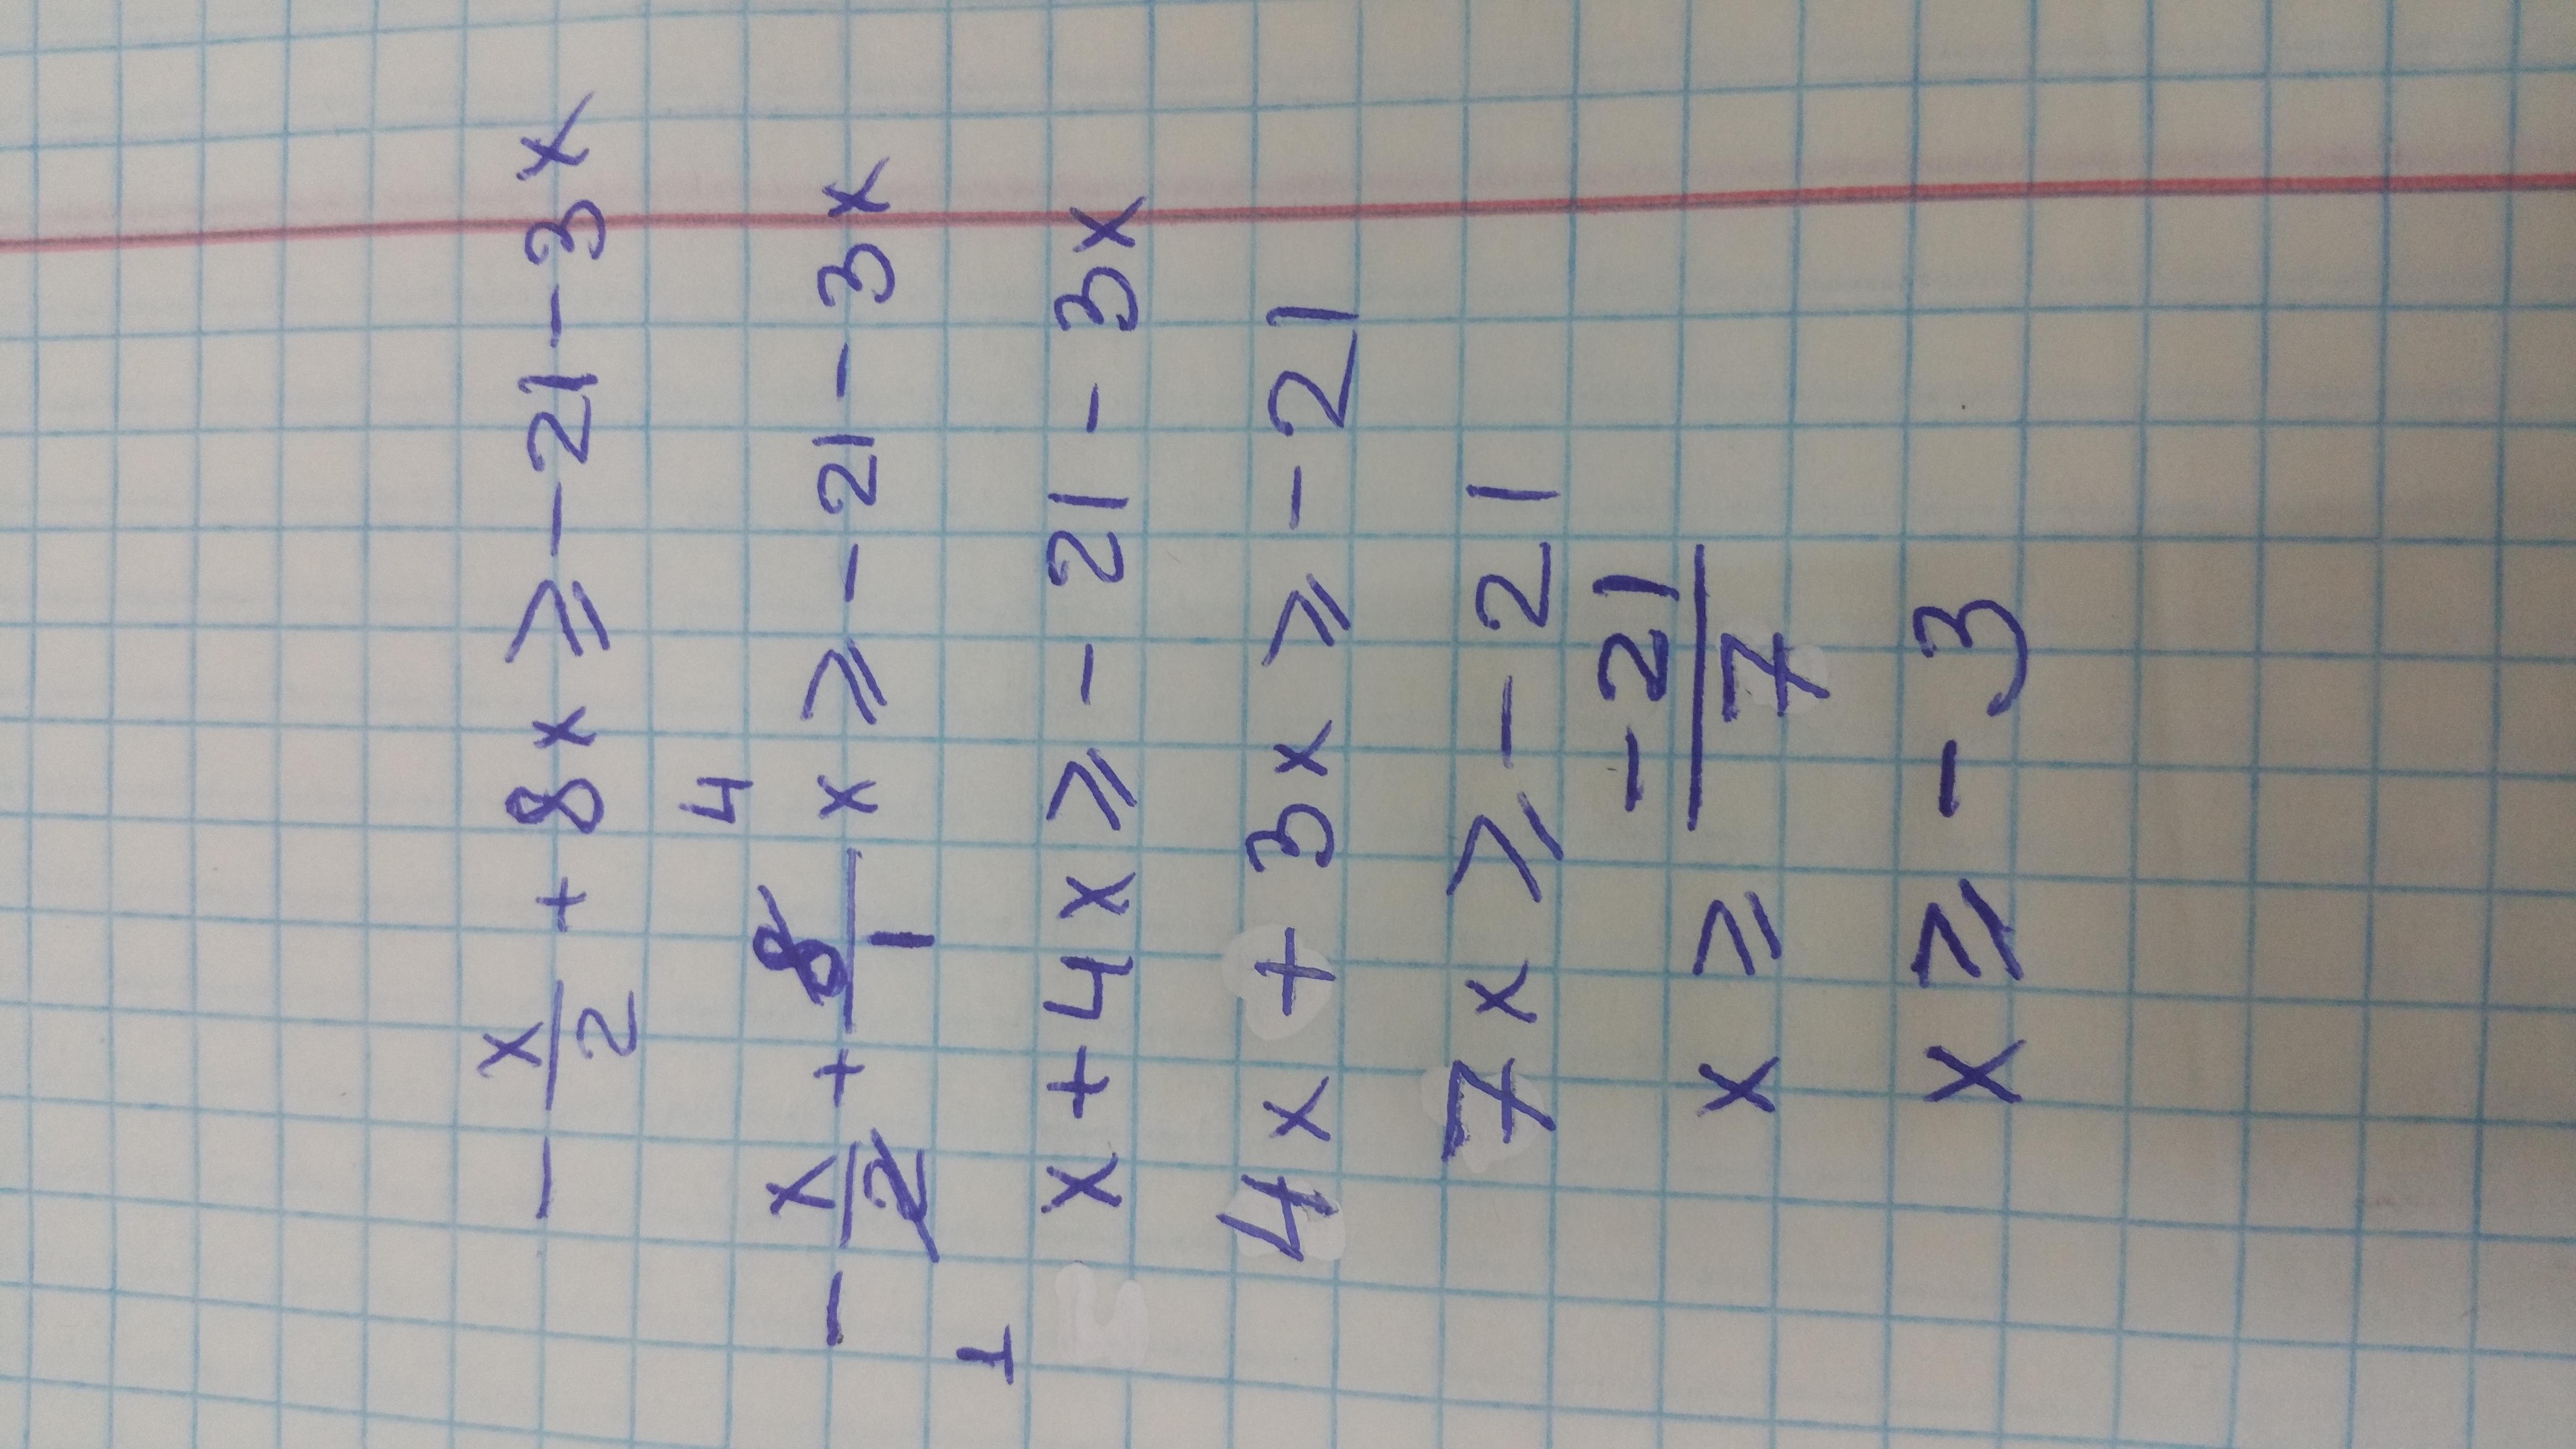 - x/2 + 8x ⩾ - 21 - 3x
4
- x/2 + 8/1 x ⩾ - 21 - 3x
1
x + 4x ⩾ - 21 - 3x
4x + 3x ⩾ - 21
7x ⩾ - 21
x ⩾ -21/7
x ⩾ - 3